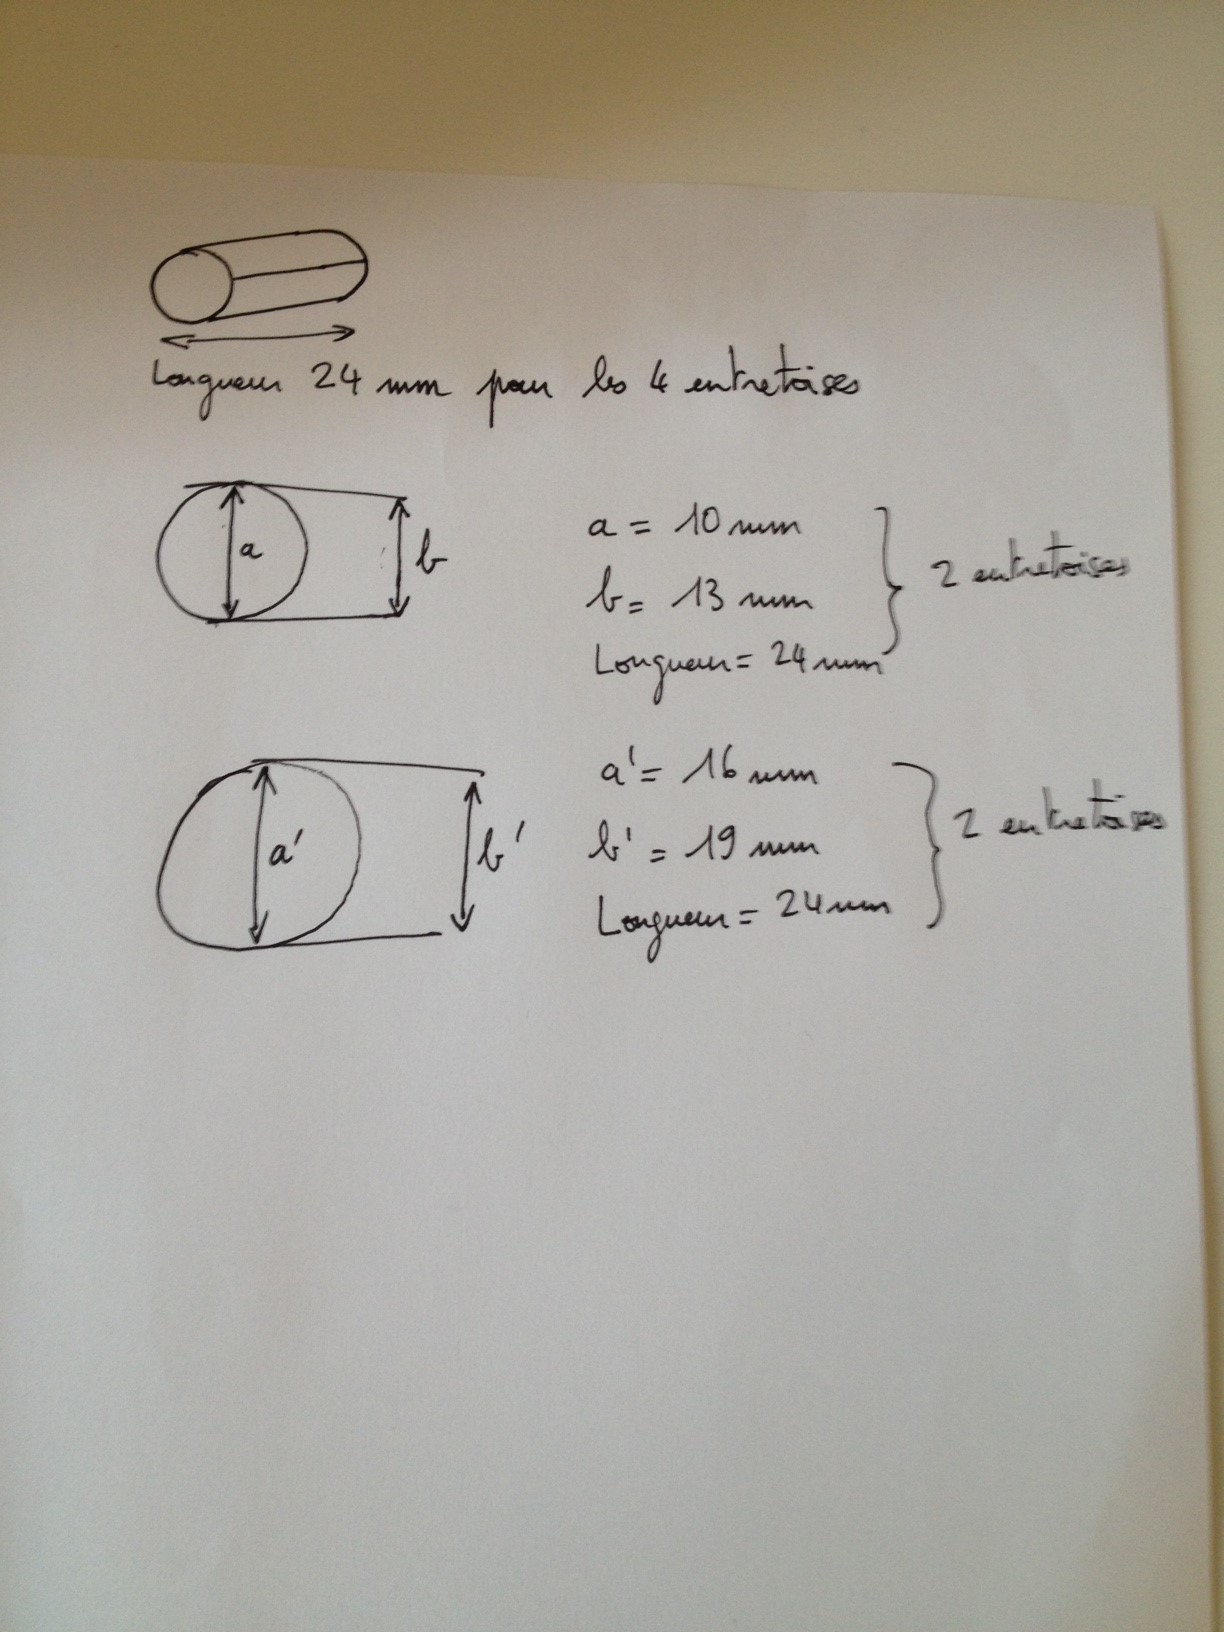 Longueur 24 mm pour les 4 entretoises
a
b
a = 10 mm
b = 13 mm
Longueur = 24 mm
2 entretoises
a'
b'
a' = 16 mm
b' = 19 mm
Longueur = 24 mm
2 entretoises